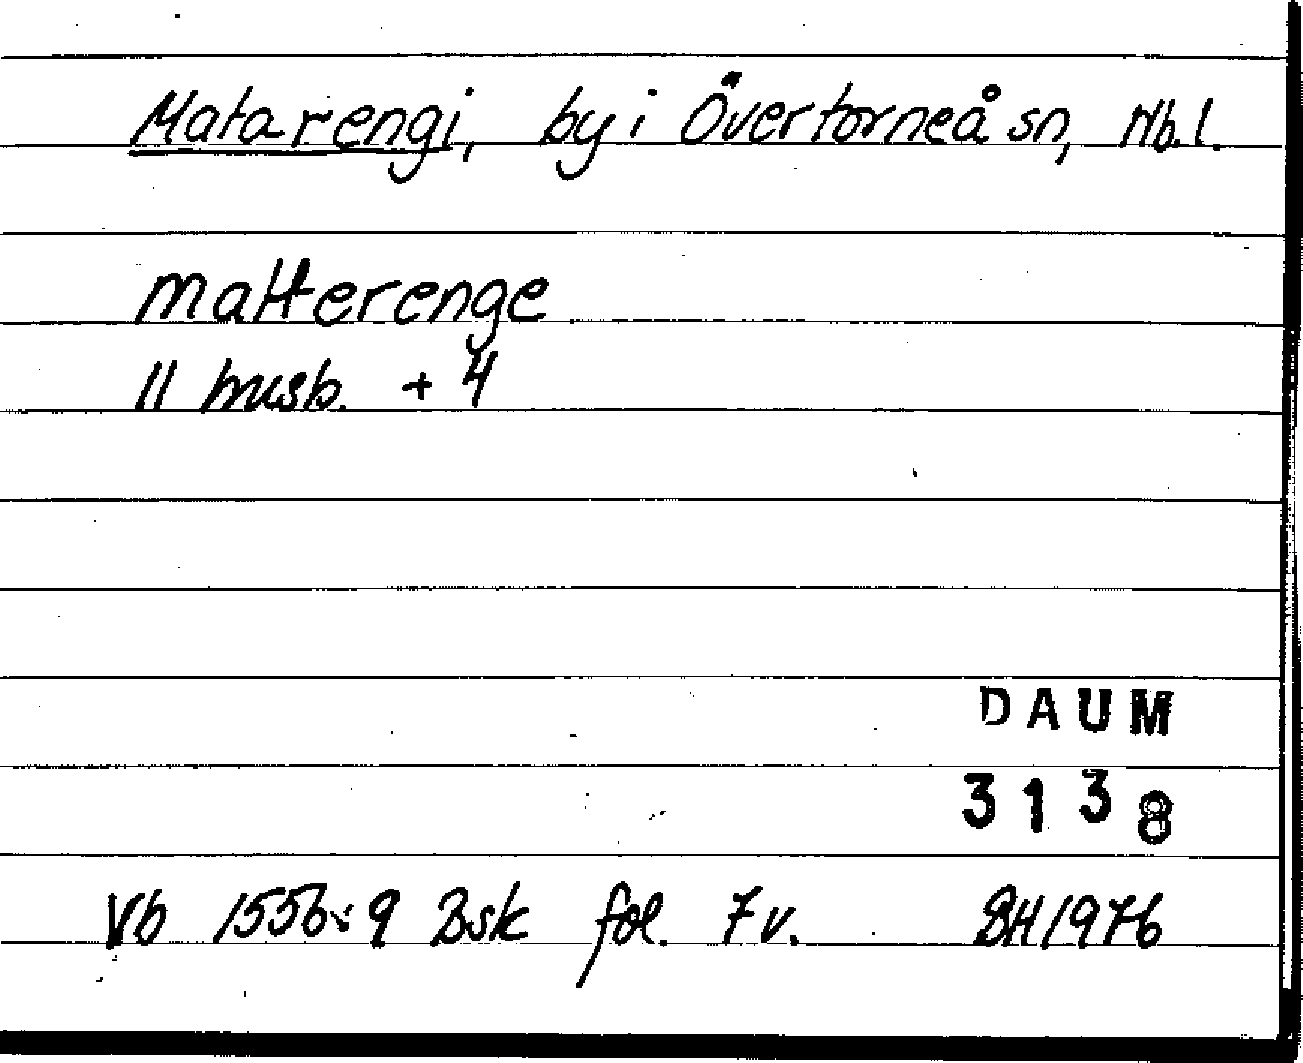 Matarengi, by i Övertorneå sn, Nb. l.
matterenge
11 busb. + 4
DAUM
3138
Vb 1556:9 Bsk fol. 7 v. BH 1976